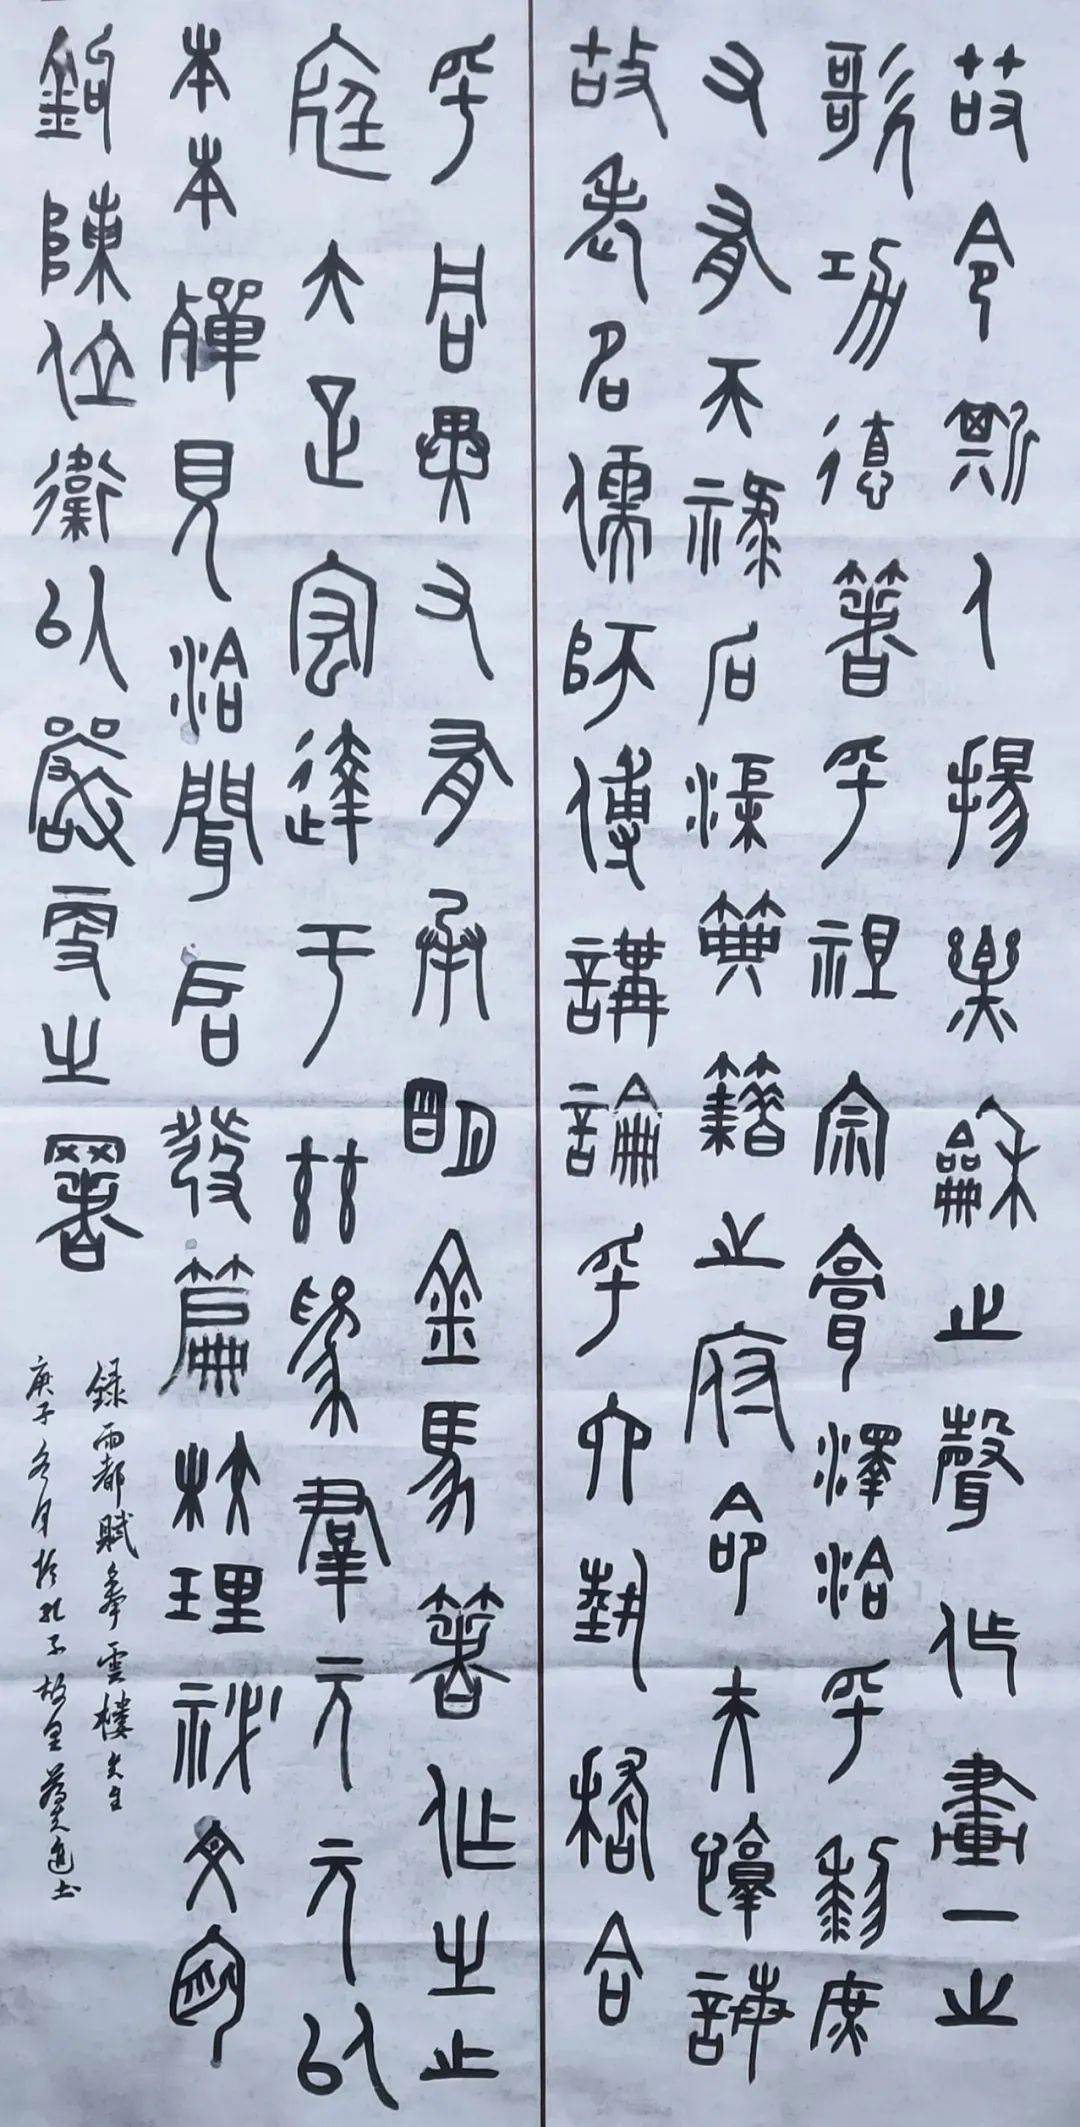 故令斯人揚樂龢之聲作畫一之
歌功德箸乎祖宗膏澤洽乎黎庶
又有天祿石渠典籍之府命夫惇誨
故老名儒師傅講論乎六藝稽合
乎同異又有承明金馬箸作之之
庭大疋宏達于茲為群元元以
本本殫見洽聞启發篇校理祕文周
鉤陳位衛以嚴更之署
錄西都賦奉雲樓先生
庚子冬月於孔子故里